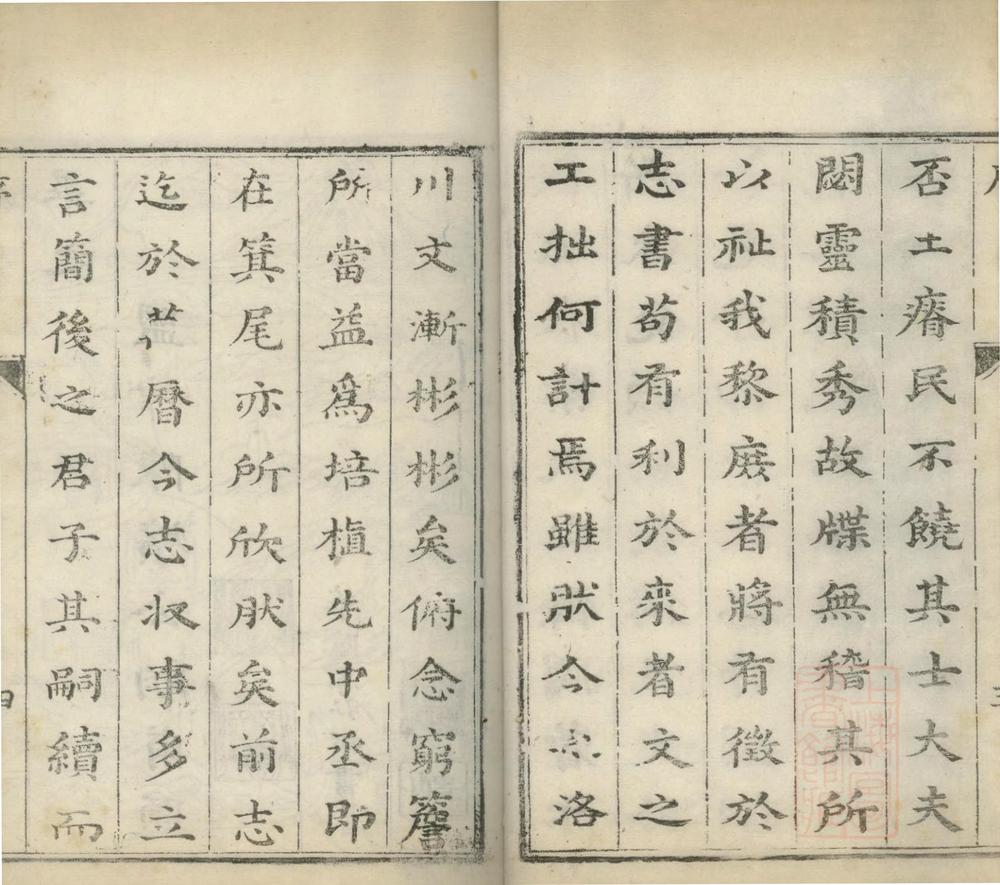 否土瘠民不饒其士大夫
閟靈積秀故牒無稽其所
以祉我黎庶者將有徵於
志書苟有利於來者文之
工拙何計焉雖肰今洛
川文漸彬彬矣俯念窮簷
所當益爲培植先中丞即
在箕尾亦所欣肰矣前志
迄於曆今志収事多立
言簡後之君子其嗣續而